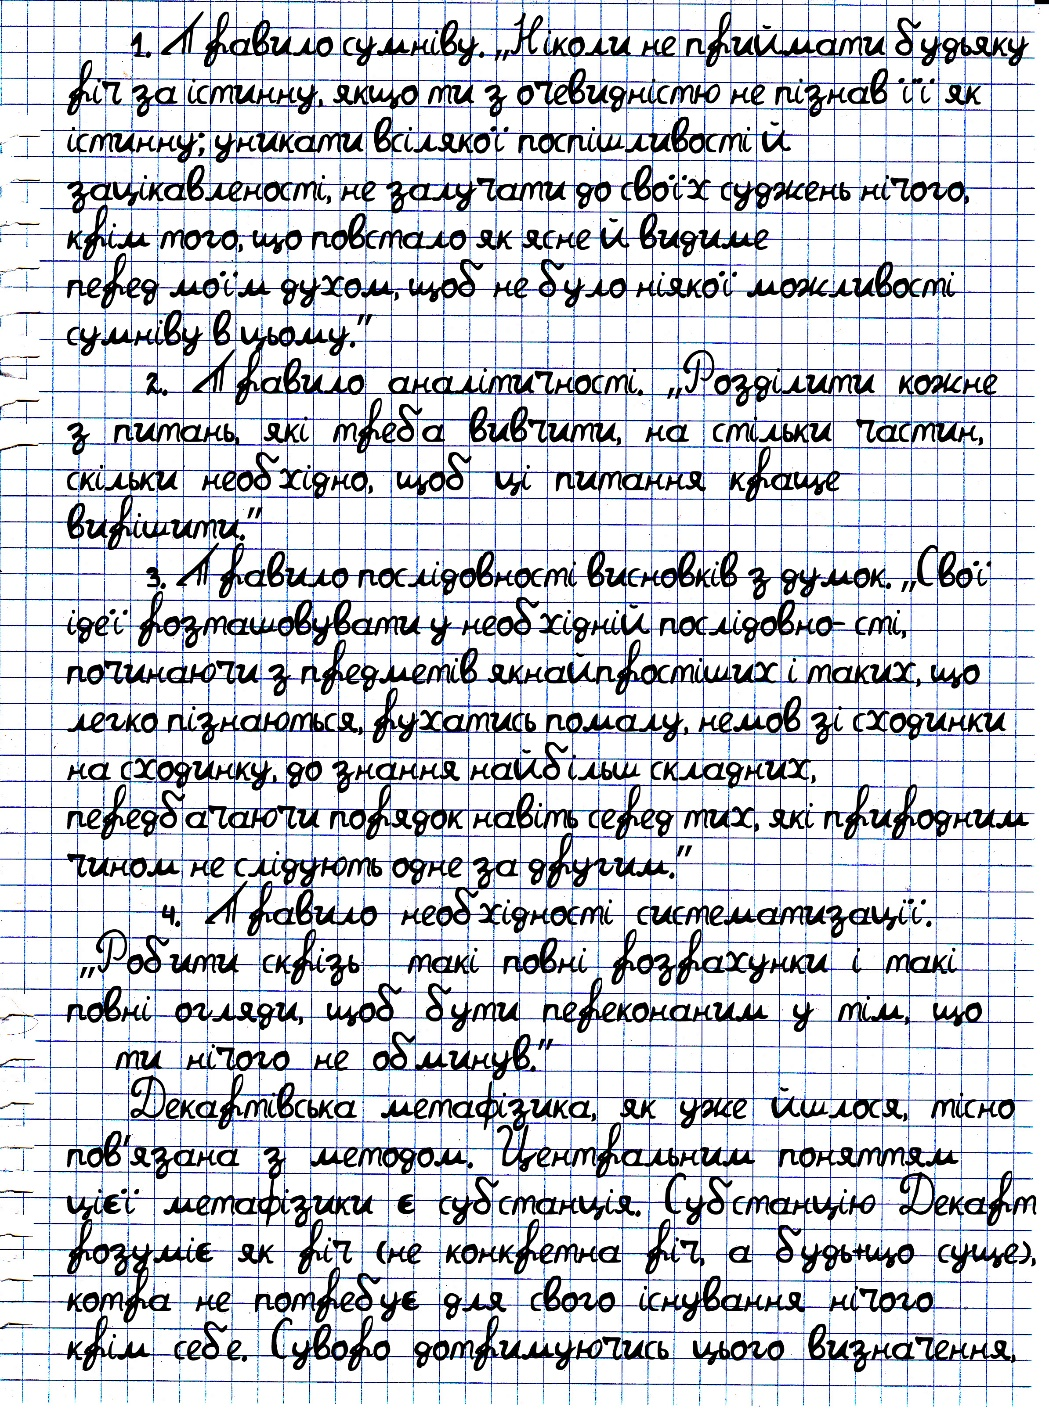 1. Правило сумніву. „Ніколи не приймати будьяку
річ за істинну, якщо ти з очевидністю не пізнав її як
істинну; уникати всілякої поспішливості й
зацікавленості, не залучати до своїх суджень нічого,
крім того, що повстало як ясне й видиме
перед моїм духом, щоб не було ніякої можливості
сумніву в цьому.”
2. Правило аналітичності. „Розділити кожне
з питань, які треба вивчити, на стільки частин,
скільки необхідно, щоб ці питання краще
вирішити.”
3. Правило послідовності висновків з думок. „Свої
ідеї розташовувати у необхідній послідовно- сті,
починаючи з предметів якнайпростіших і таких, що
легко пізнаються, рухатись помалу, немов зі сходинки
на сходинку, до знання найбільш складних,
передбачаючи порядок навіть серед тих, які природним
чином не слідують одне за другим.”
4. Правило необхідності систематизації.
„Робити скрізь такі повні розрахунки і такі
повні огляди, щоб бути переконаним у тім, що
ти нічого не обминув.”
Декартівська метафізика, як уже йшлося, тісно
пов'язана з методом. Центральним поняттям
цієї метафізики є субстанція. Субстанцію Декарт
розуміє як річ (не конкретна річ, а будь-що суще),
котра не потребує для свого існування нічого
крім себе. Суворо дотримуючись цього визначення,